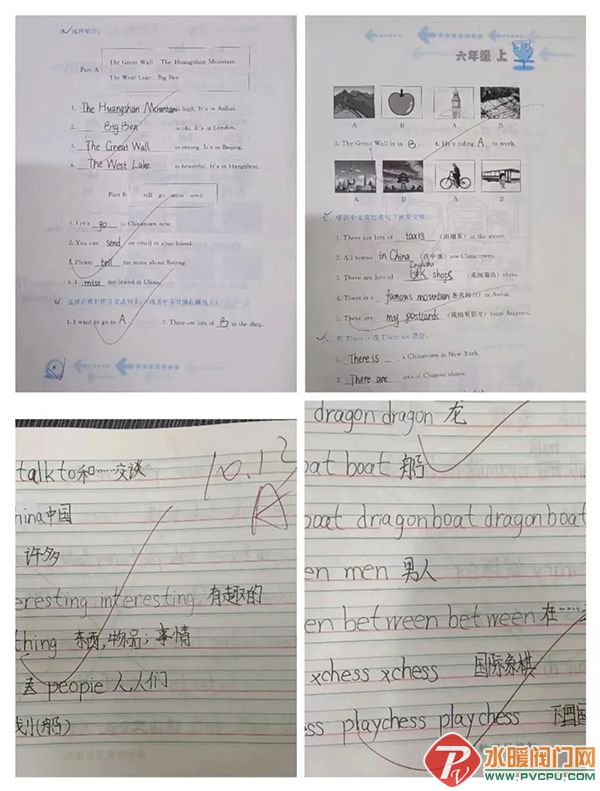 选择填空。
Part A
The Great Wall The Huangshan Mountain
The West Lake Big Ben
1. The Huangshan Mountain is high. It's in Anhui.
2. Big Ben is old. It's in London.
3. The Great Wall is strong. It's in Beijing.
4. The West Lake is beautiful. It's in Hangzhou.
Part B tell go miss send
1. Let's go to Chinatown now.
2. You can send an email to your friend.
3. Please tell me more about Beijing.
4. I miss my friend in China.
1. I want to go to A .
2. There are lots of B in the shop.
六年级 上
A B A B
3. The Great Wall is in B . 4. He's riding A to work.
A B A B
1. There are lots of taxis (出租车) in the street.
2. All towns in China (在中国) are Chinatowns.
English
3. There are lots of UK shops (英国商店) there.
4. There is a famous mountain in Anhui.
5. These are my postcards (我的明信片) from America.
用 There is 或 There are 填空。
1. There is a Chinatown in New York.
2. There are lots of Chinese shops.
talk to 和……交谈
10.12
A
hina 中国
许多
eresting interesting 有趣的
thing 东西,物品;事情
peopie 人,人们
划(船)
dragon dragon 龙
oat boat 船
boat driagonboat dragonboat
en men 男人
en between between 在……
xchess xchess 国际象棋
ss playchess playchess
水暖阀门网
WWW.PVCPU.COM